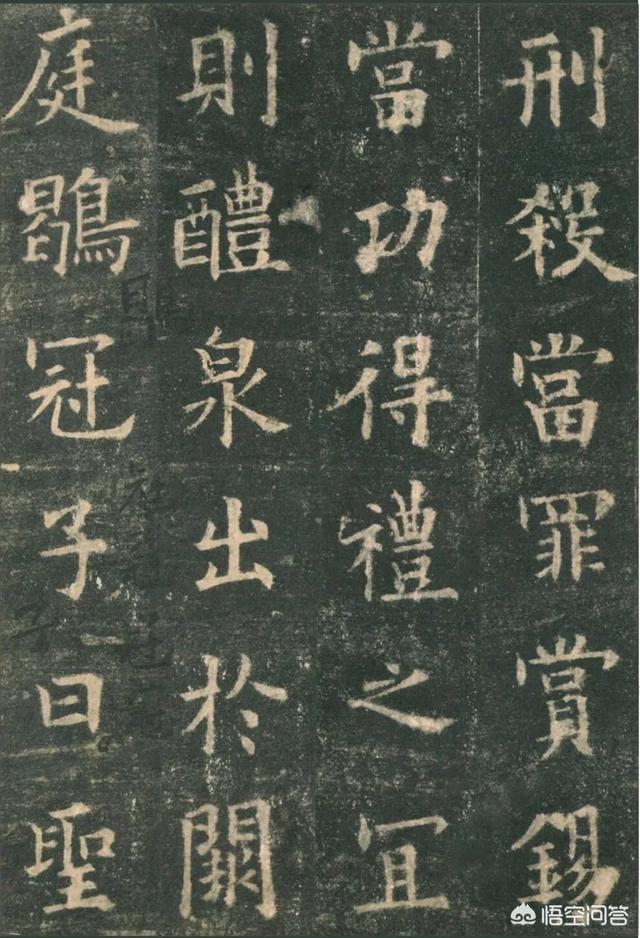 刑殺當罪賞錫
當功得禮之宜
則醴泉出於闕
庭鶡冠子曰聖
悟空问答